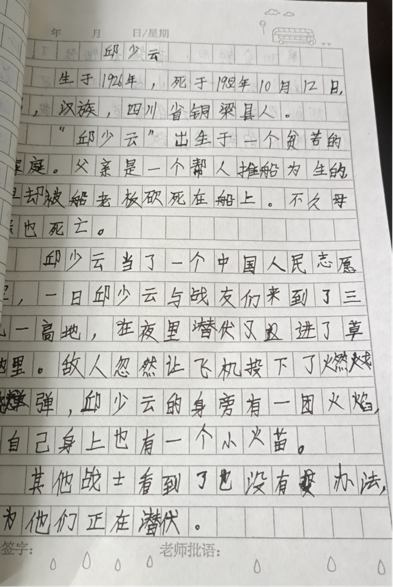 年 月 日/星期
邱少云
生于1926年，死于1952年10月12日，
，汉族，四川省铜梁县人。
“邱少云”出生于一个贫苦的
家庭。父亲是一个帮人推船为生的
却被船老板砍死在船上。不久母
也死亡。
邱少云当了一个中国人民志愿
，一日邱少云与战友们来到了三
一高地，在夜里潜伏又进了草
地里。敌人忽然让飞机投下了燃烧
弹，邱少云的身旁有一团火焰，
自己身上也有一个小火苗。
其他战士看到了也没有办法，
为他们正在潜伏。
签字： 老师批语：